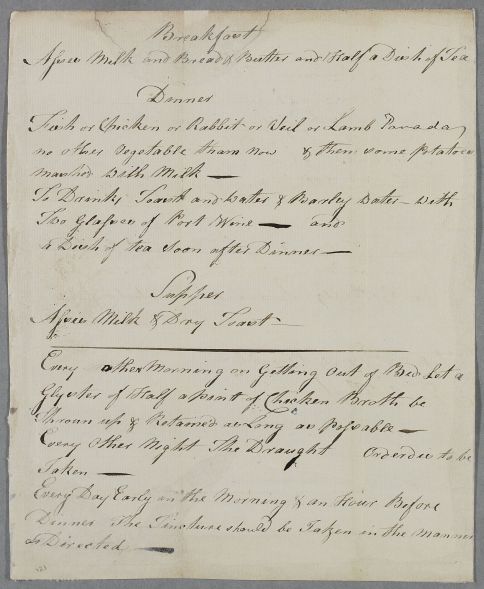 Breakfast
Asses Milk and Bread & Butter and Half a Dish of Tea
Dinner
Fish or Chicken or Rabbit or Veil or Lamb Panada,
no other Vegetable than now & then some Potatoes
mashed with Milk —
To Drink, Toast and Water & Barley Water with
Two Glasses of Port Wine — and
a Dish of tea soon after Dinner —
Supper
Asses Milk & Dry Toast —
Every other Morning on Getting Out of Bed Let a
Glyster of Half a pint of Chicken Broth be
Thrown up & Retained as Long as Possable —
Every Other Night The Draught Orderdee to be
Taken —
Every Day Early in the Morning & an Hour Before
Dinner The Tincture should be Taken in the Manner
Directed —